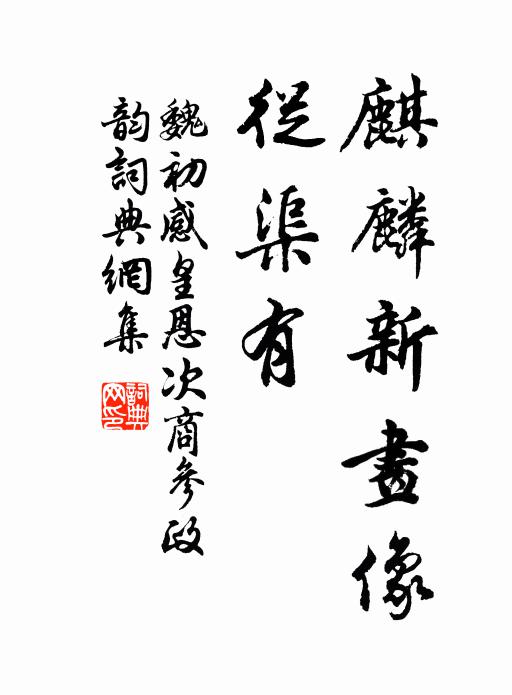 麒麟新畫像
從渠有
魏初感皇恩次商參政
韵詞典網集
詞典網印